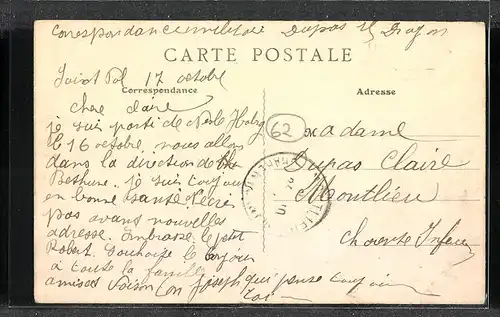 Correspondance militaire Dupas 25 Dragon
CARTE POSTALE
Correspondance
Adresse
Saint Pol 17 octobre
chere Claire
je suis parti de Nesle
le 16 octobre nous allons
dans la direction de
Bethune. je suis toujours
en bonne santé
pas avant nouvelles
adresse. Embrasse le petit
Robert. Souhaite le bonjour
à toute la famille
amis et voisin ton Joseph qui pense toujours
toi
62
Madame
Dupas Claire
Montlieu
Charente Infer